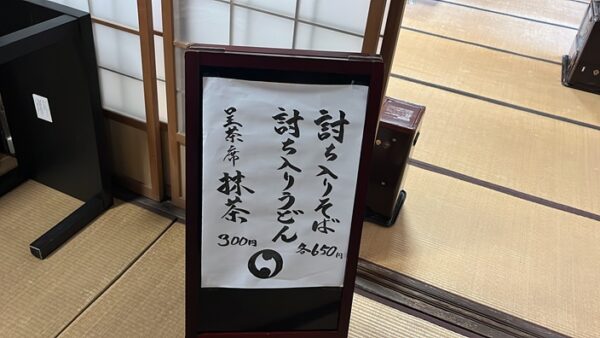 討ち入りそば
討ち入りうどん
各650円
呈茶席 抹茶
300円